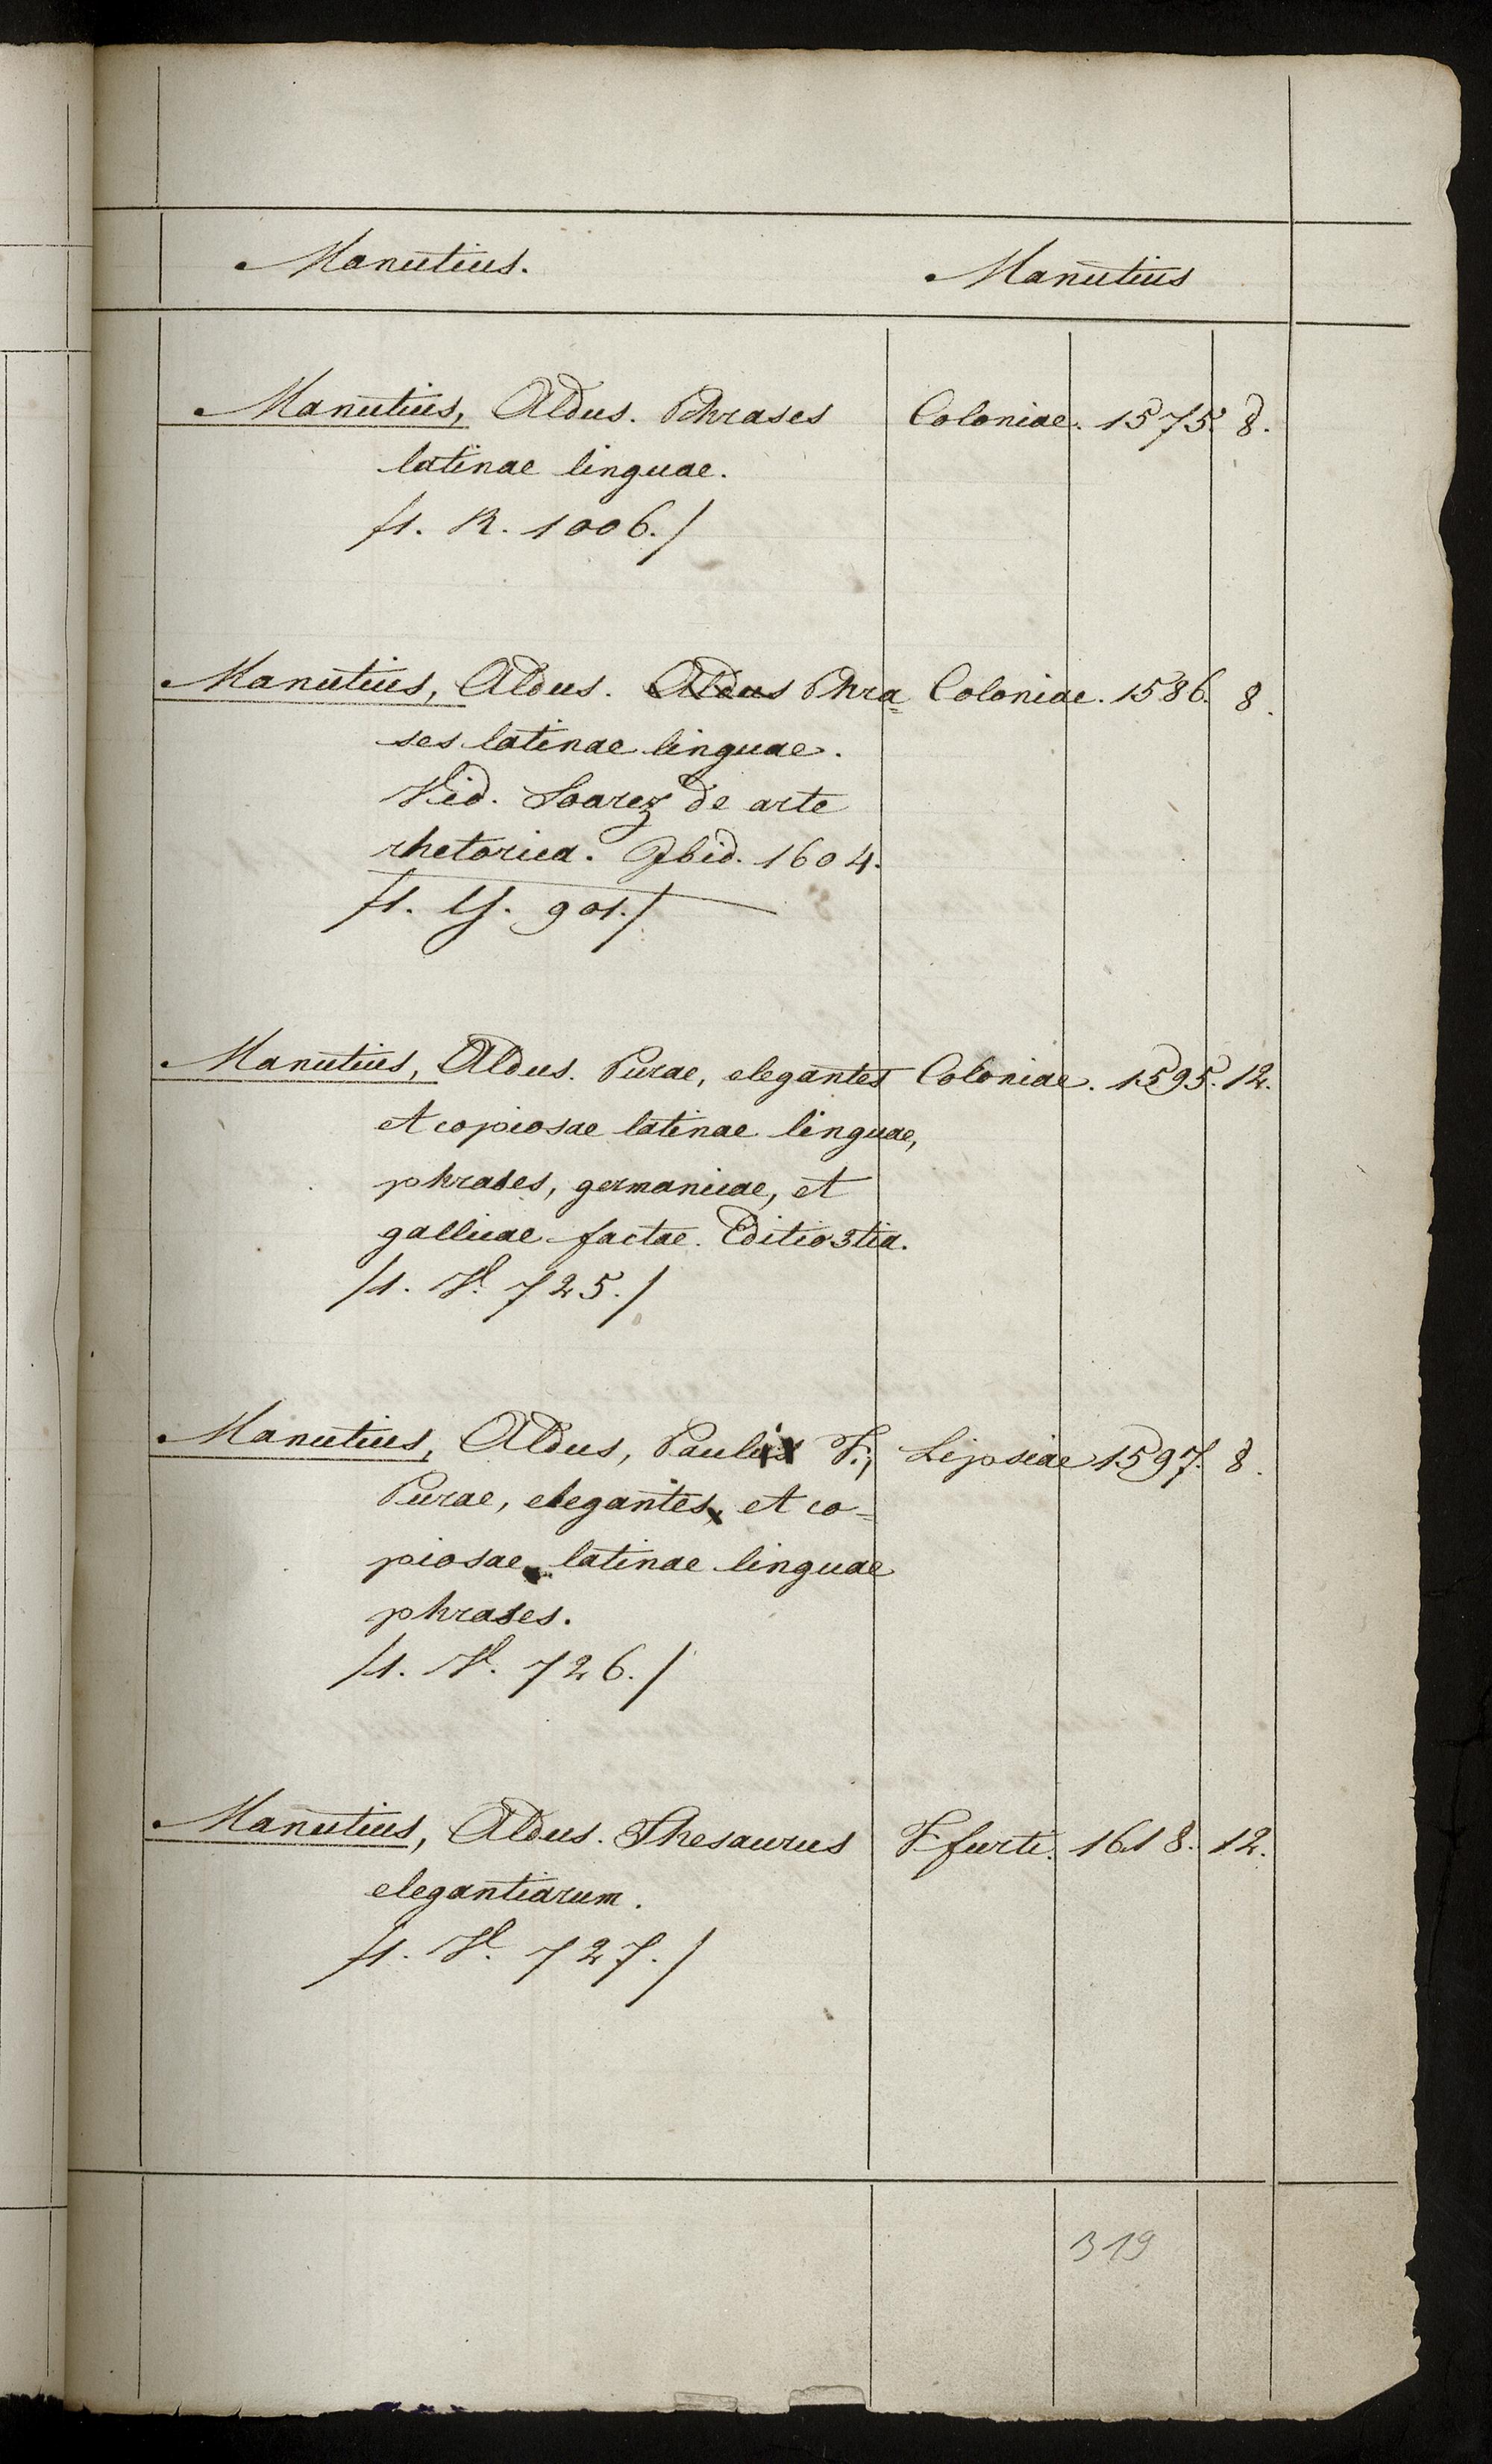 Manutius. Manutius
Manutius, Aldus. Phrases Coloniae. 1575. 8.
latinae linguae.
/1. R. 1006./
Manutius, Aldus. Aldus Phra= Coloniae. 1586. 8.
ses latinae linguae.
Vid. Soarez de arte
rhetorica. Ibid. 1604.
/1. 901./
Manutius, Aldus. Purae, elegantes Coloniae. 1595. 12.
et copiosae latinae linguae,
phrases, germanicae, et
gallicae factae. Editio 3tia.
/1. V. 725./
Manutius, Aldus, Pauli F., Lipsiae 1597. 8.
Purae, elegantes et co=
piosae latinae linguae
phrases.
/1. V. 726./
Manutius, Aldus. Thesaurus Ffurti. 1618. 12.
elegantiarum.
/1. V. 727./
319